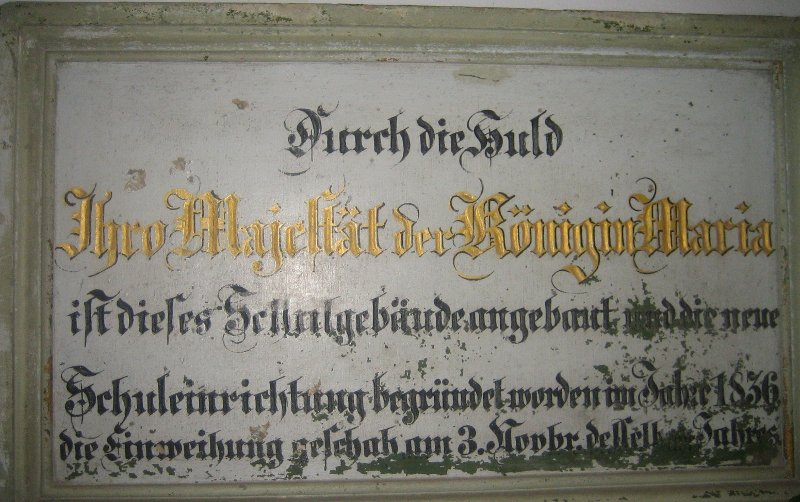 Durch die Huld
Ihro Majestät der Königin Maria
ist dieses Schulgebäude angebaut und die neue
Schuleinrichtung begründet worden im Jahre 1836
die Einweihung geschah am 3. Novbr. desselben Jahres.